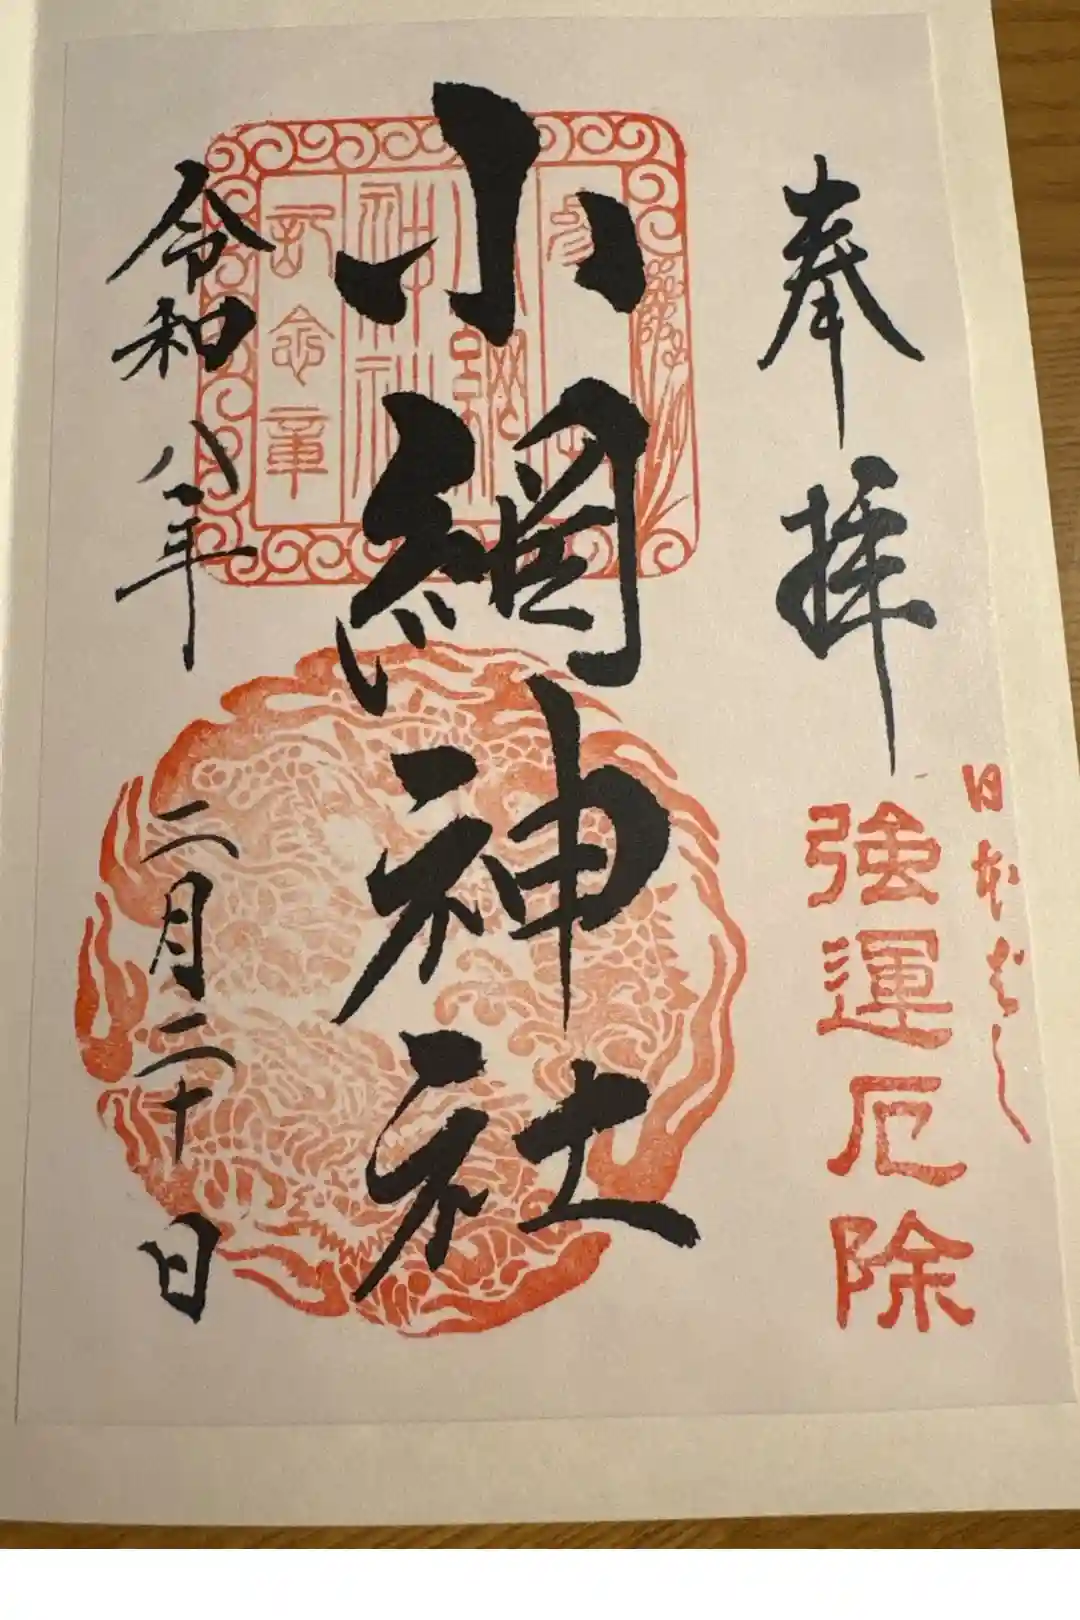 奉拝
日本ばし
強運厄除
小網神社
小網神社
記念章
令和八年
二月二十日